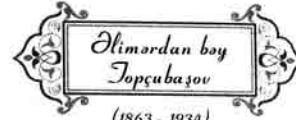 Əlimərdan bəy
Topçubaşov
(1863 - 1934)